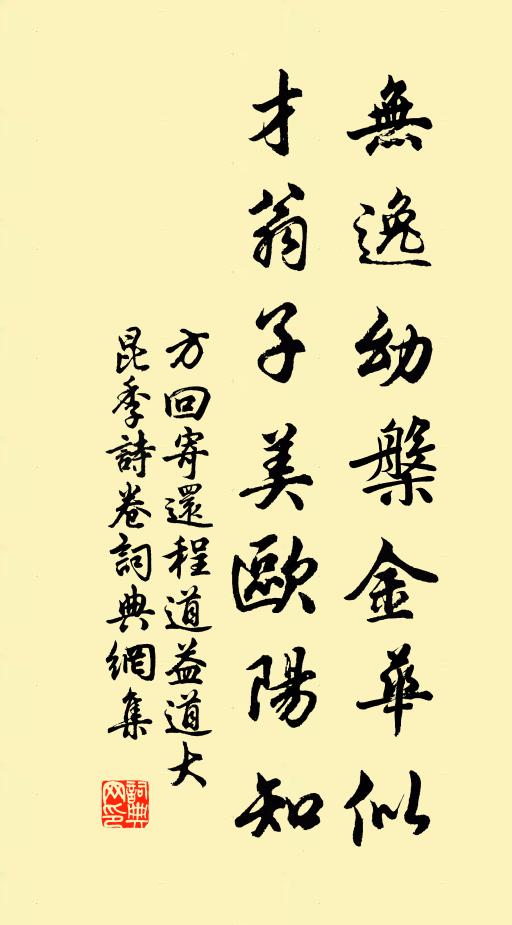 無逸幼槃金華似
才翁子美歐陽知
方回寄還程道益道大
昆季詩卷詞典網集
詞典网印